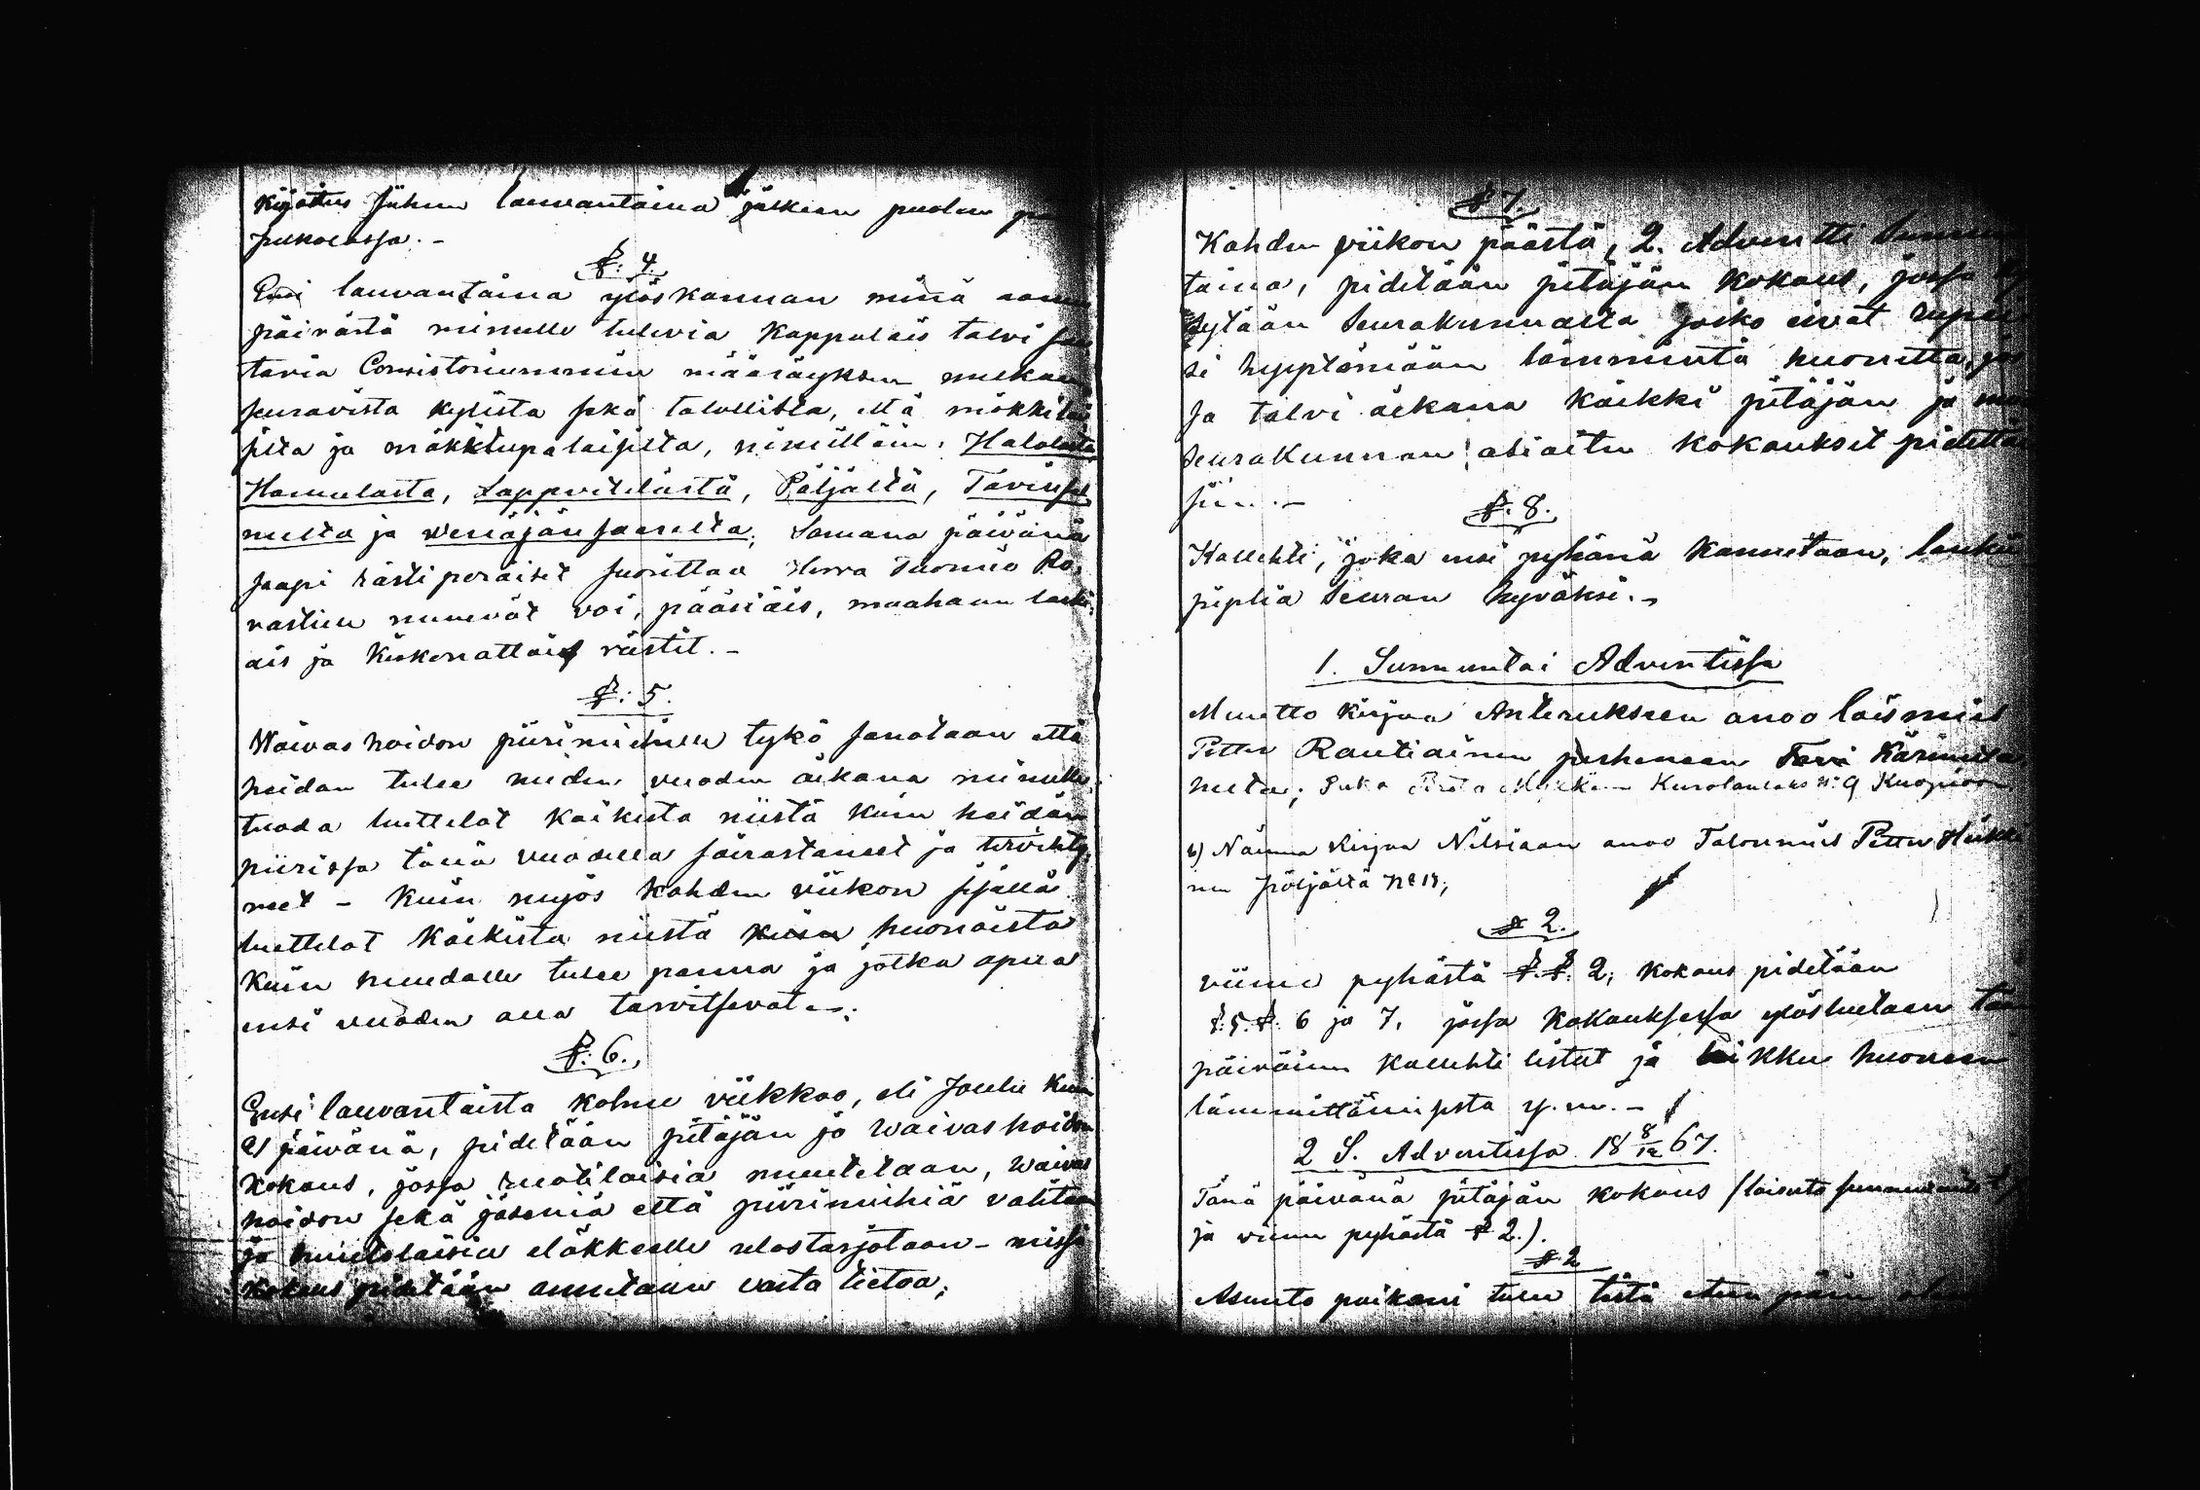 kijoitus juhun lauvantaina jälkeen puolen
jukolassa. -
§: 4.
Ensi lauvantaina ylöskannan minä
päivästä minulle tulevia kappalais talvi
tavia Consistoriummin määräyksen mukaan
seuravista kylistä sekä talollisilta, että mökkiläi
silta ja mäkitupalaisilta, nimittäin: Halolasta,
Hamulasta, Lappvetelästä, Pöljältä, Tavinsal
melta ja Wenäjänsaarelta; Samana päivänä
saapi rästiperäiset suorittaa Herra Tuomio Ro,
vastiin menevät voi, pääsiäis, maahan laski
ais ja Kiskonattais rästit. -
§: 5.
Waivashoidon piirimiesten tykö sanotaan että
heidän tulee uuden vuoden aikana minulle
tuoda luettelot kaikista niistä kuin heidän
piirissä tänä vuodella sairastaneet ja tervehty,
neet - Kuin myös kahden viikon sisällä
luettelot kaikista niistä kuin huonoista
kuin huudolle tulee panna ja jotka apua
ensi vuoden alla tarvitsevat -;
§: 6.,
Ensi lauvantaista kolme viikkoo, eli Joulu kuun
21 päivänä, pidetään pitäjän ja waivashoidon
kokous, jossa ruotilaisia muutetaan, waivas
hoidon sekä jäseniä että piirimiehiä valitaan
ja huutolaisia eläkkeelle ulostarjotaan - missä
kokous pidetään annetaan vasta tietoa;
§ 7.
Kahden viikon päästä, 2. Adventti Sunnun
taina, pidetään pitäjän kokous, jossa
sytään Seurakunnalta josko eivät
si hyyptämään lämmintä huonetta,
sa talvi aikana kaikki pitäjän ja
seurakunnan asioitu kokoukset pidettä
siin. -
§. 8.
Kollehti, joka ensi pyhänä kannetaan, lankee
piplia Seuran hyväksi. -
1. Sunnuntai Adventissa
Muutto kirjaa Anterukseen anoo loismies
Petter Rautiainen perheneen Tavi
melta; Kurolanlaks N: 9 Kuopioon
b) Näinna kirjaa Nilsiaan anoo Talonmies Petter
nen Pöljältä No 19,
§ 2.
viime pyhästä §.§. 2; kokous pidetään
§.§.§. 6 ja 7. jossa kokouksessa ylösluetaan
päiväinen kollehti listat ja huoneen
lämmittämisestä y. m. -
2 S. Adventissa 18 8/12 67.
Tänä päivänä pitäjän kokous (
ja viime pyhästä § 2.).
§ 2
Asunto paikani tulee tästä